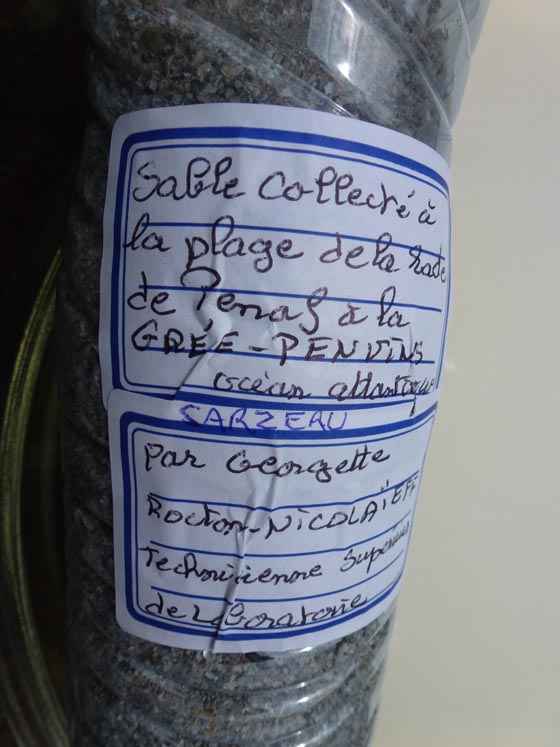 Sable Collecté à
la plage de la Rade
de Penaf à la
GRÉE-PENVINS
océan atlantique
SARZEAU
Par Georgette
Rocton-NICOLAÏEFF
Technicienne Supérieure
de Laboratoire